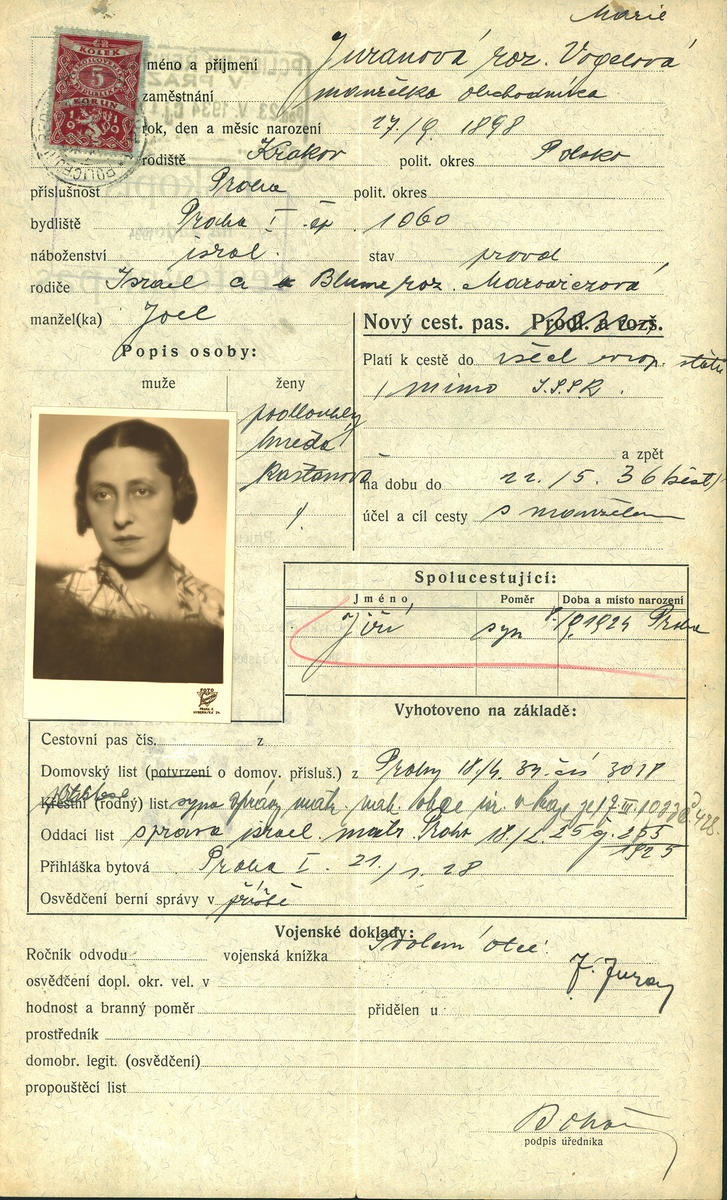 Marie
KOLEK
5
KORUN
1919
Jméno a příjmení Juranová roz. Vogelová
zaměstnání manželka obchodníka
rok, den a měsíc narození 27/9. 1898
rodiště Krakov polit. okres Polsko
příslušnost Praha polit. okres
bydliště Praha I čp 1060
náboženství israel. stav provd
rodiče Israel a Blume roz.
manžel(ka) Joel
Nový cest. pas. Prodl. a rozš.
Popis osoby:
Platí k cestě do všech evrop. států
muže ženy
mimo S.S.S.R.
podlouhlý
hnědá
kaštanová
a zpět
na dobu do 22./5. 36
účel a cíl cesty s manželem
Spolucestující:
Jméno Poměr Doba a místo narození
Jiří syn 1924 Praha
FOTO
Vyhotoveno na základě:
Cestovní pas čís. z
Domovský list (potvrzení o domov. přísluš.) z Prahy 18/4. 34. čís 3018
Křestní (rodný) list
Oddací list správa israel. matr. Praha 18/2. 25 255
1925
Přihláška bytová Praha I. 21/1. 28
Osvědčení berní správy v příště
Vojenské doklady:
Ročník odvodu vojenská knížka
osvědčení dopl. okr. vel. v
J. Juran
hodnost a branný poměr přidělen u
prostředník
domobr. legit. (osvědčení)
propouštěcí list
podpis úředníka